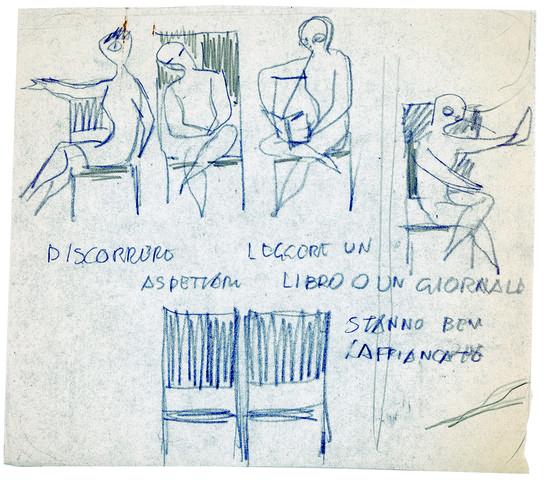 DISCORRERE
ASPETTARE
LEGGERE UN
LIBRO O UN GIORNALE
STANNO BEN
AFFIANCATE